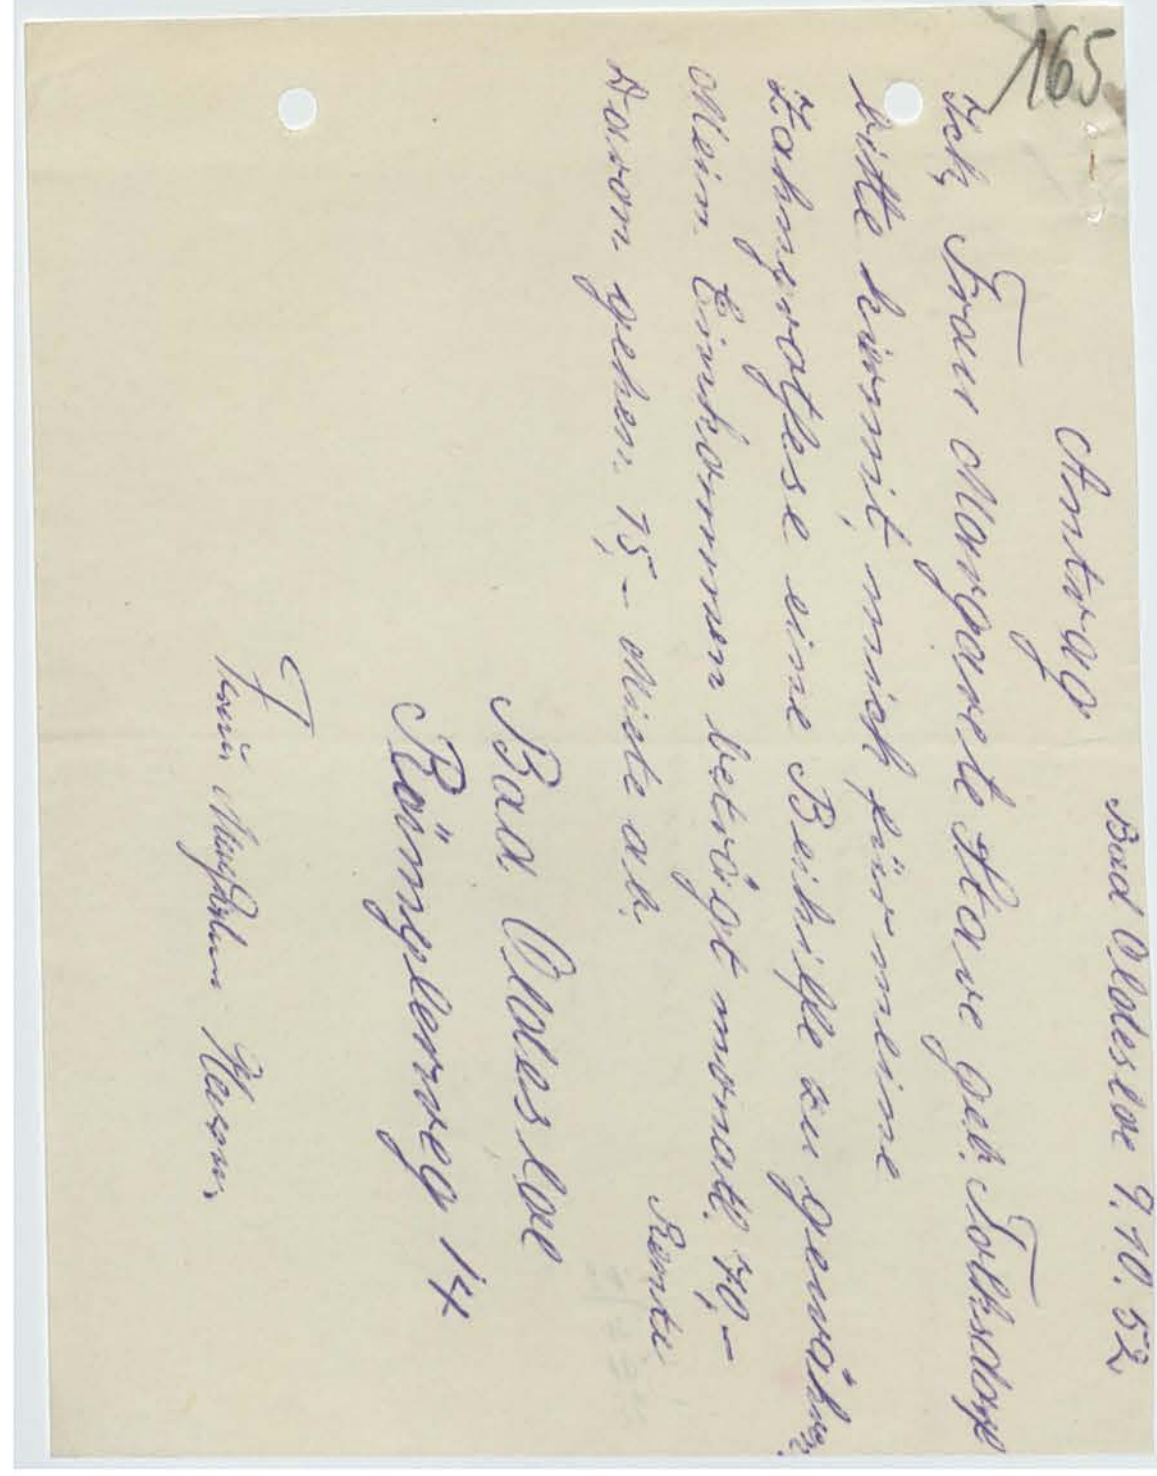 165
Bad Oldesloe 9.10.52
Antrag
Ich, Frau Margarete Stave geb. Tolksdorf
bitte hiermit, mich für meine
Zahnprotese eine Beihilfe zu gewähren.
Mein Einkommen beträgt monatl. 70,-
Rente
Davon gehen 15,- Miete ab.
Bad Oldesloe
14
Frau